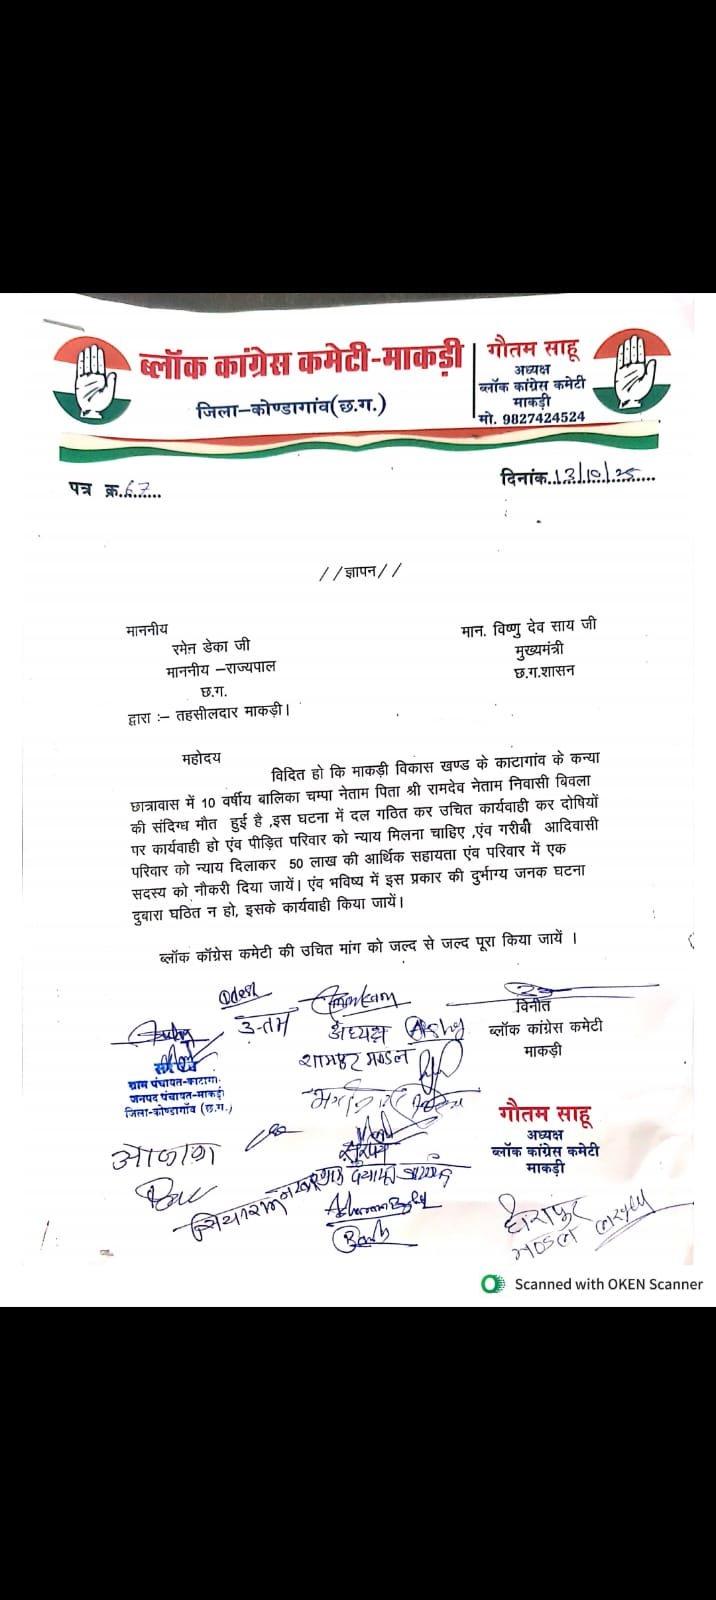 ब्लॉक कांग्रेस कमेटी-माकड़ी
जिला-कोण्डागांव(छ.ग.)
गौतम साहू
अध्यक्ष
ब्लॉक कांग्रेस कमेटी
माकड़ी
मो. 9827424524
पत्र क्र. 67
दिनांक 13/10/25
//ज्ञापन//
माननीय
रमेन डेका जी
माननीय –राज्यपाल
छ.ग.
द्वारा :– तहसीलदार माकड़ी।
मान. विष्णु देव साय जी
मुख्यमंत्री
छ.ग.शासन
महोदय
विदित हो कि माकड़ी विकास खण्ड के काटागांव के कन्या
छात्रावास में 10 वर्षीय बालिका चम्पा नेताम पिता श्री रामदेव नेताम निवासी बिवला
की संदिग्ध मौत हुई है ,इस घटना में दल गठित कर उचित कार्यवाही कर दोषियों
पर कार्यवाही हो एंव पीड़ित परिवार को न्याय मिलना चाहिए ,एंव गरीबी आदिवासी
परिवार को न्याय दिलाकर 50 लाख की आर्थिक सहायता एंव परिवार में एक
सदस्य को नौकरी दिया जायें। एंव भविष्य में इस प्रकार की दुर्भाग्य जनक घटना
दुबारा घठित न हो, इसके कार्यवाही किया जायें।
ब्लॉक कॉंग्रेस कमेटी की उचित मांग को जल्द से जल्द पूरा किया जायें ।
विनीत
ब्लॉक कांग्रेस कमेटी
माकड़ी
अध्यक्ष
सरपंच
ग्राम पंचायत-काटागांव
जनपद पंचायत-माकड़ी
जिला-कोण्डागाँव (छ.ग.)
गौतम साहू
अध्यक्ष
ब्लॉक कांग्रेस कमेटी
माकड़ी
Scanned with OKEN Scanner